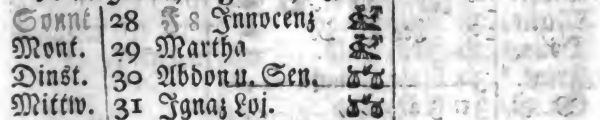 Sonnt 28 F 8 Innocenz
Mont. 29 Martha
Dinst. 30 Abdon u. Sen.
Mittw. 31 Ignaz Loj.